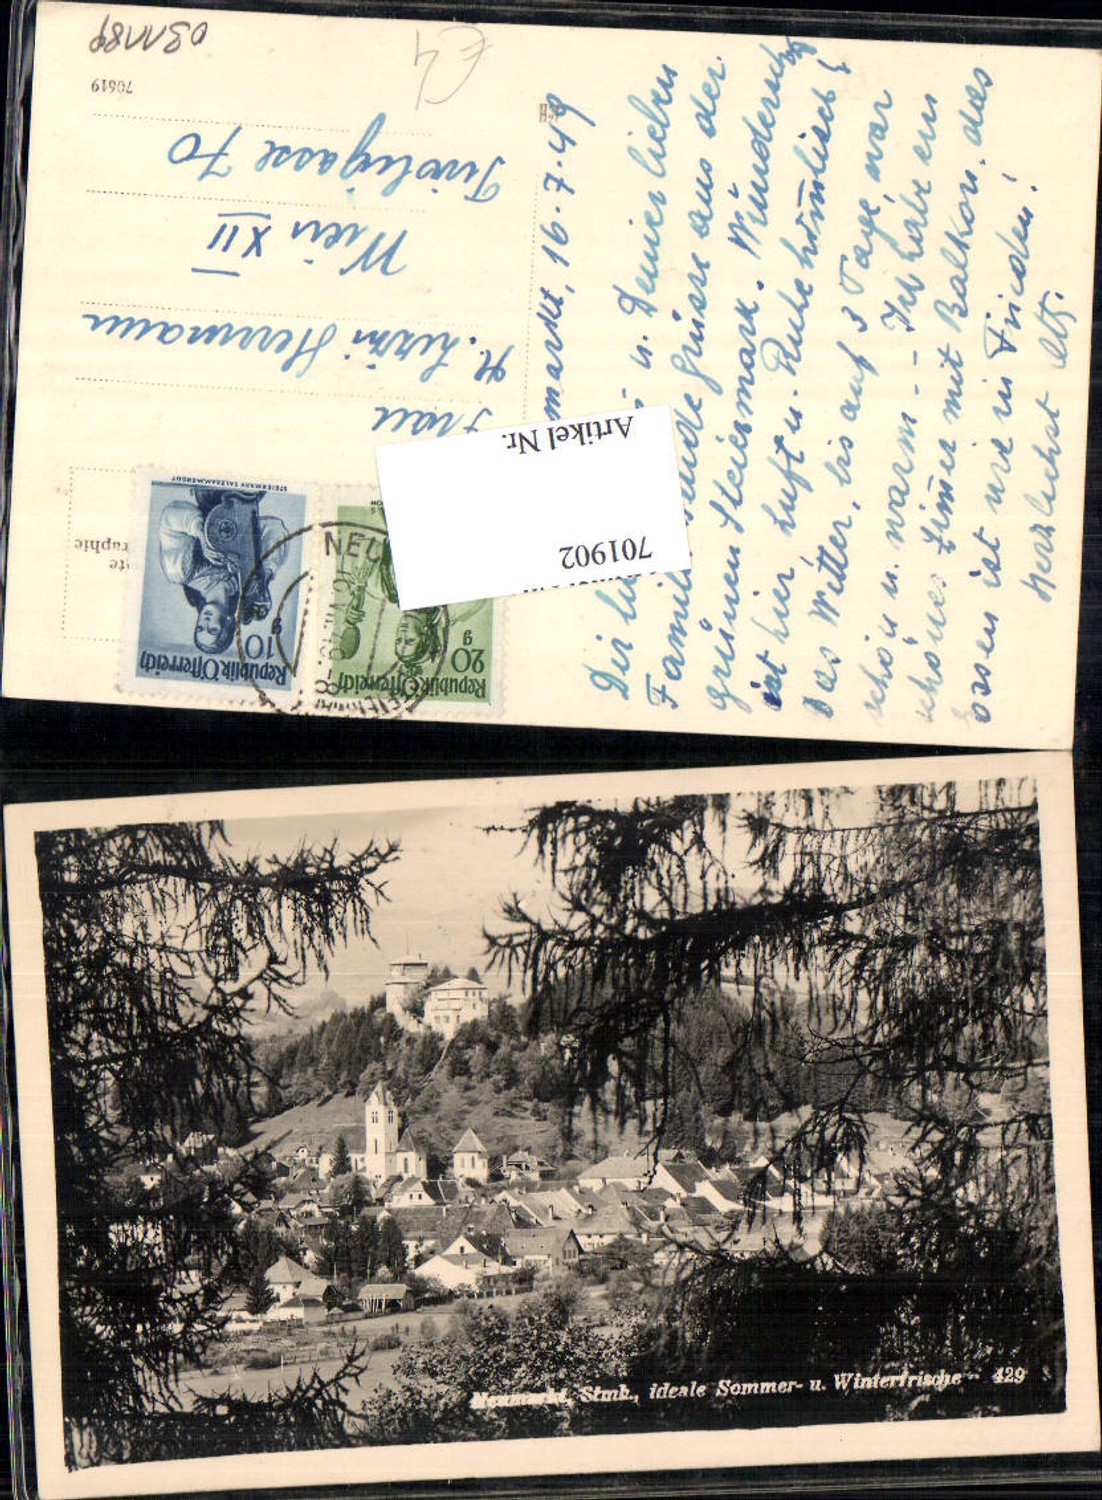 031184
70619
E4
Neumarkt, 19.7.49
Dir liebe u. Deiner lieben
Familie Grüsse aus der
grünen Steiermark. Wunderschön
ist hier Luft u. Ruhe himmlisch!
Das Wetter, bis auf 3 Tage, war
schön u. warm. – Ich habe ein
schönes Zimmer mit Balkon. das
essen ist wie in Frieden!
Herzlichst
Frau
Herrmann
Wien XII
Tivoligasse 70
Artikel Nr.
701902
Republik Österreich
10 g
STEIERMARK SALZKAMMERGUT
Republik Österreich
20 g
NEU
Neumarkt, Stmk., ideale Sommer- u. Winterfrische - 429